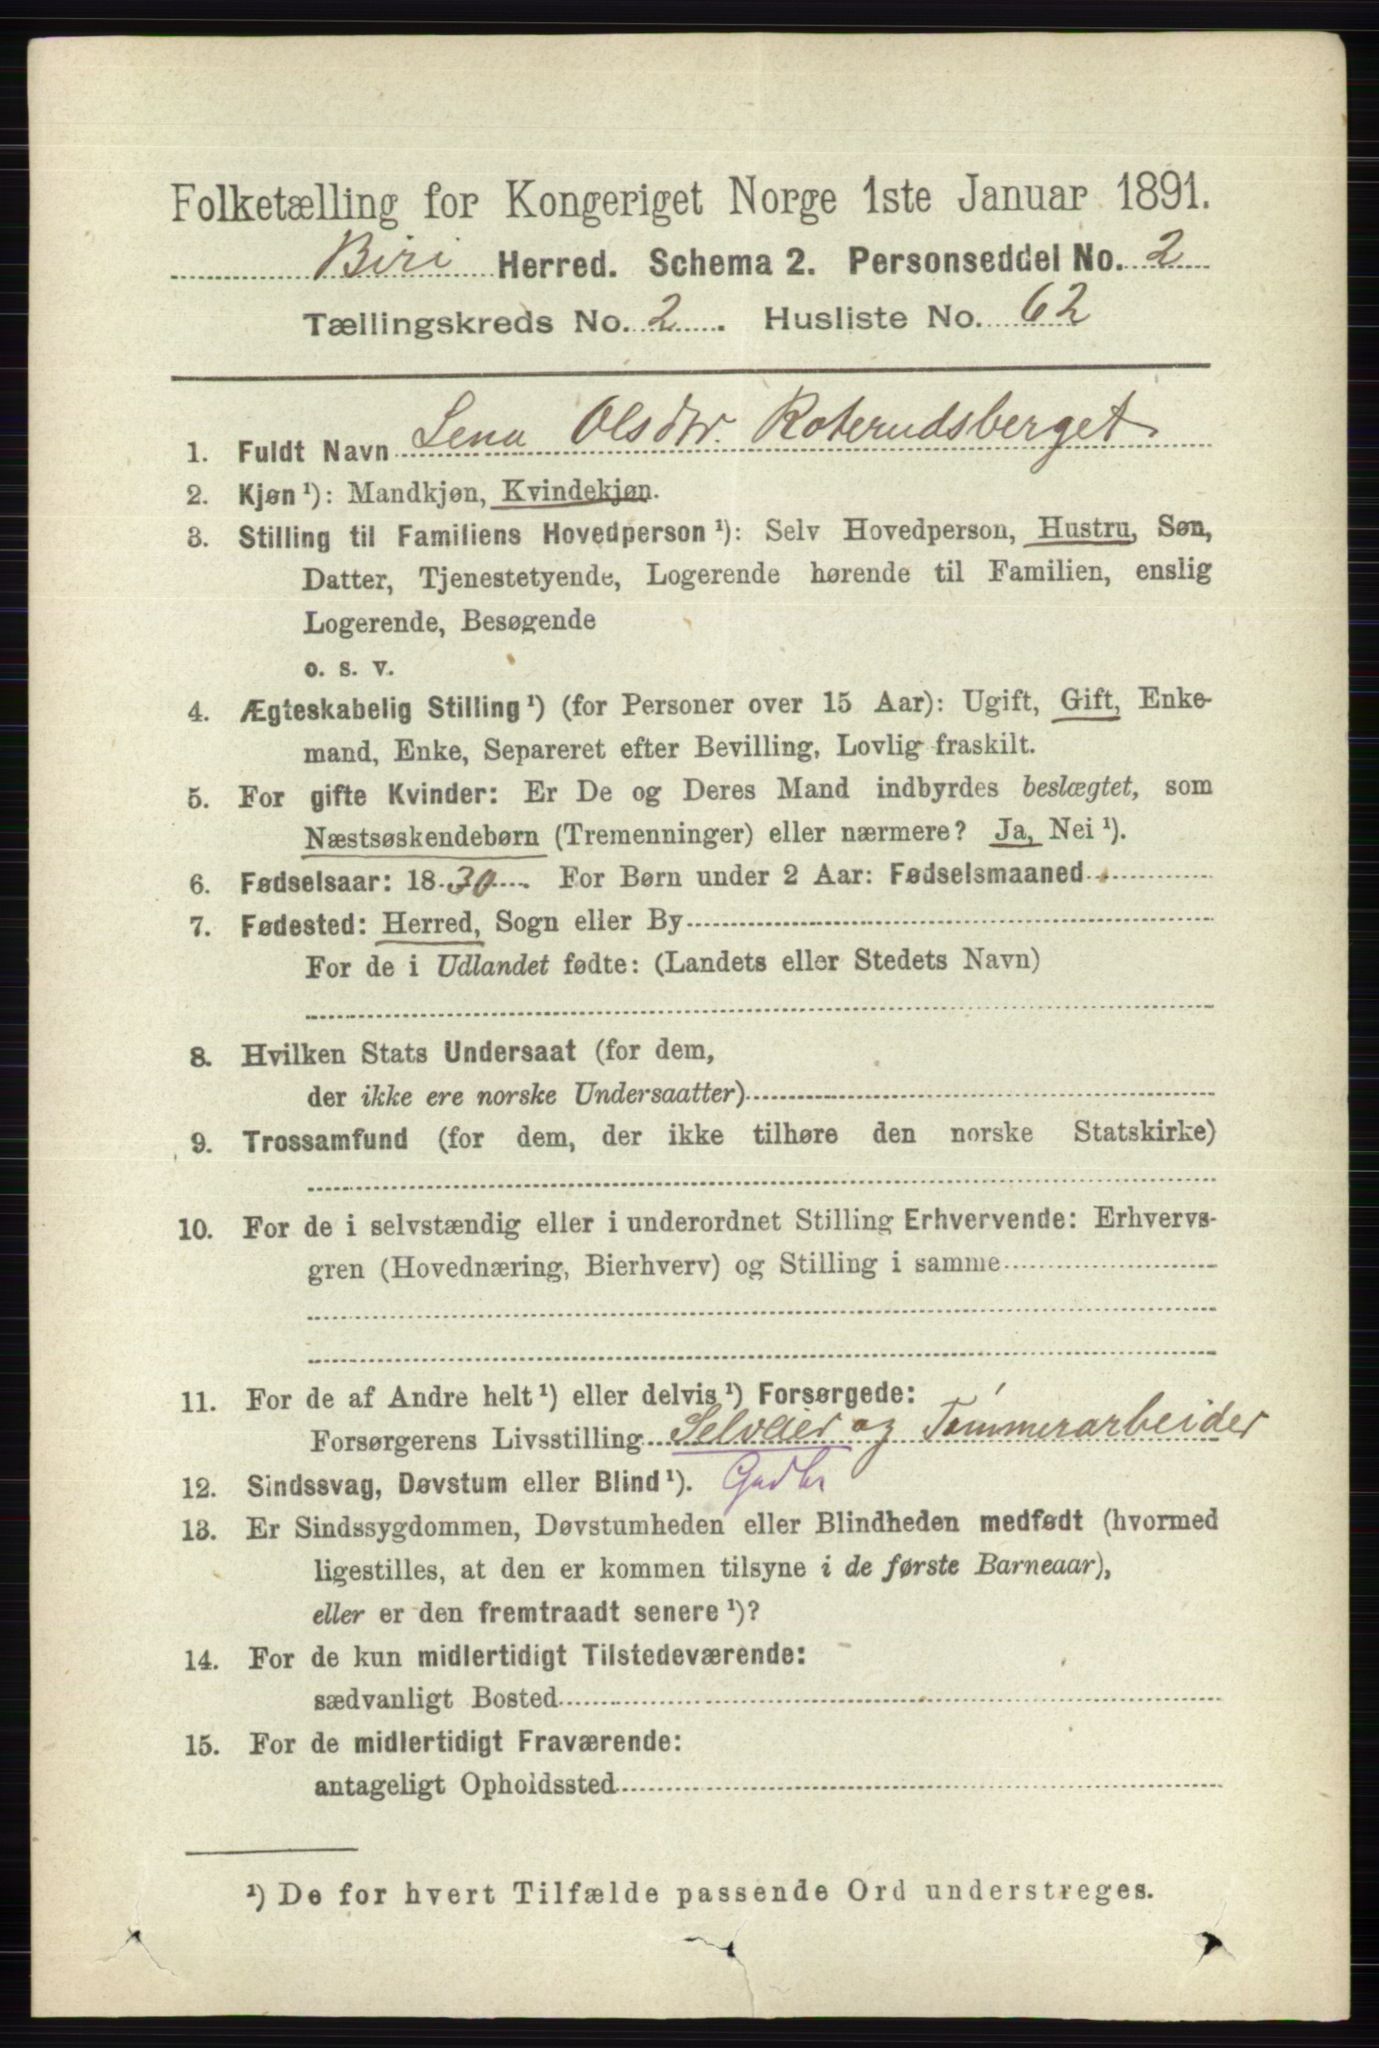 Folketælling for Kongeriget Norge 1ste Januar 1891.
Biri Herred. Schema 2. Personseddel No. 2
Tællingskreds No. 2. Husliste No. 62
1. Fuldt Navn Lena Olsdtr. Roterudsberget
2. Kjøn ¹): Mandkjøn, Kvindekjøn.
3. Stilling til Familiens Hovedperson ¹): Selv Hovedperson, Hustru, Søn,
Datter, Tjenestetyende, Logerende hørende til Familien, enslig
Logerende, Besøgende
o. s. v.
4. Ægteskabelig Stilling ¹) (for Personer over 15 Aar): Ugift, Gift, Enke-
mand, Enke, Separeret efter Bevilling, Lovlig fraskilt.
5. For gifte Kvinder: Er De og Deres Mand indbyrdes beslægtet, som
Næstsøskendebørn (Tremenninger) eller nærmere? Ja, Nei ¹).
6. Fødselsaar: 1830. For Børn under 2 Aar: Fødselsmaaned
7. Fødested: Herred, Sogn eller By
For de i Udlandet fødte: (Landets eller Stedets Navn)
8. Hvilken Stats Undersaat (for dem,
der ikke ere norske Undersaatter)
9. Trossamfund (for dem, der ikke tilhøre den norske Statskirke)
10. For de i selvstændig eller i underordnet Stilling Erhvervende: Erhvervs-
gren (Hovednæring, Bierhverv) og Stilling i samme
11. For de af Andre helt ¹) eller delvis ¹) Forsørgede:
Forsørgerens Livsstilling Selveier og Tømmerarbeider
12. Sindssvag, Døvstum eller Blind ¹). Gadbr
13. Er Sindssygdommen, Døvstumheden eller Blindheden medfødt (hvormed
ligestilles, at den er kommen tilsyne i de første Barneaar),
eller er den fremtraadt senere ¹)?
14. For de kun midlertidigt Tilstedeværende:
sædvanligt Bosted
15. For de midlertidigt Fraværende:
antageligt Opholdssted
¹) De for hvert Tilfælde passende Ord understreges.